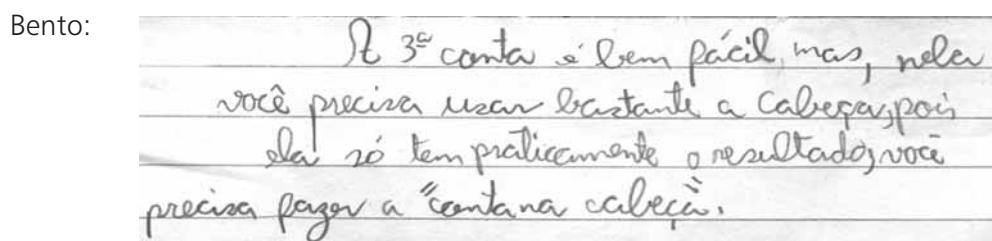 Bento:
A 3ª conta é bem fácil, mas, nela
você precisa usar bastante a cabeça, pois
ela só tem praticamente o resultado, você
precisa fazer a "conta na cabeça".